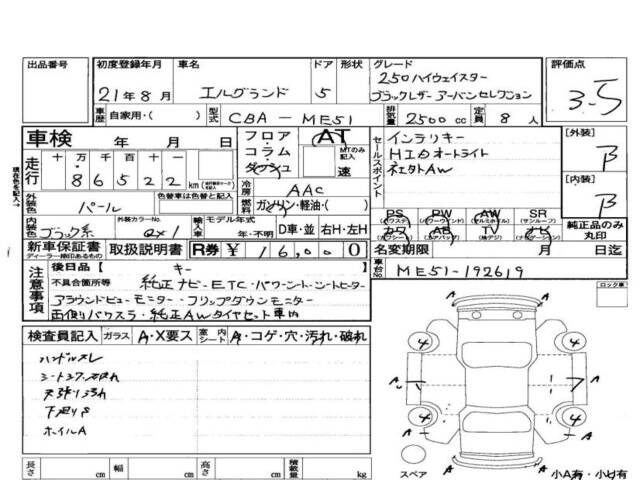 出品番号 初度登録年月 車名 ドア 形状 グレード 評価点
21年8月 エルグランド 5 250ハイウェイスター 3.5
ブラックレザーアーバンセレクション
車歴 自家用・( ) 型式 CBA-ME51 排気量 2500cc 定員 8人
車検 年 月 日 フロア AT
コラム MTのみ記入
ダッシュ 速
セールスポイント インテリキー
HIDオートライト
[外装] B
[内装] B
走行 十 万 千 百 十
86522 km
冷房 AAC
燃料 ガソリン・軽油・( )
現在色を記入→
外装色 パール 色替車は色替と記入
PS PW AW SR
(パワステ) (パワーウィンド) (アルミホイル) (サンルーフ)
カワ AB TV ナビ
(カワシート) (エアバッグ) (ナビゲーション)
純正品のみ丸印
内装色 ブラック系 外装カラーNo. QX1 輸入車 モデル年式 年・不明 D車・並 右H・左H
新車保証書 取扱説明書 R券 ¥16,000
ディーラー捺印あるもの
名変期限 月 日迄
車台No. ME51-192619
注意事項 後日品[ キー ]
不具合箇所等 純正ナビ・ETC・パワーシート・シートヒーター
アラウンドビューモニター・フリップダウンモニター
両側パワスラ・純正AWタイヤセット車内
ロック車
検査員記入 ガラス A・X要ス 室内シート A・コゲ・穴・汚れ・破れ
ハンドルスレ
天張り汚れ
下廻りS
ホイルA
A A
4 4
A A
4 4
A A
スペア 小A有・小U有
長さ cm 幅 cm 高さ cm 積載量 kg